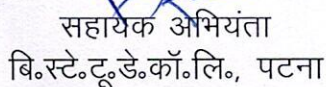 सहायक अभियंता
बि॰स्टे॰टू॰डे॰कॉ॰लि॰, पटना